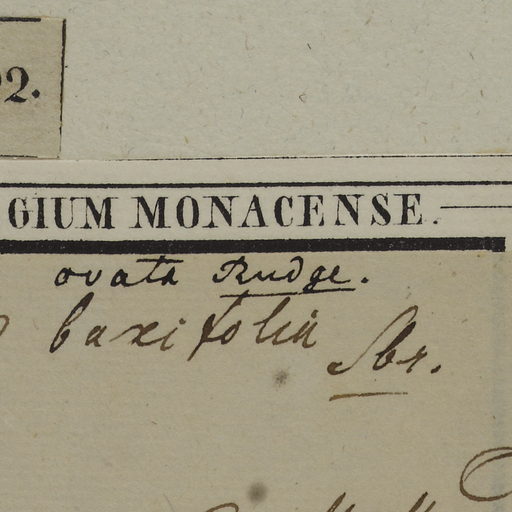 92.
GIUM MONACENSE.
ovata Rudge.
buxifolia Sbr.